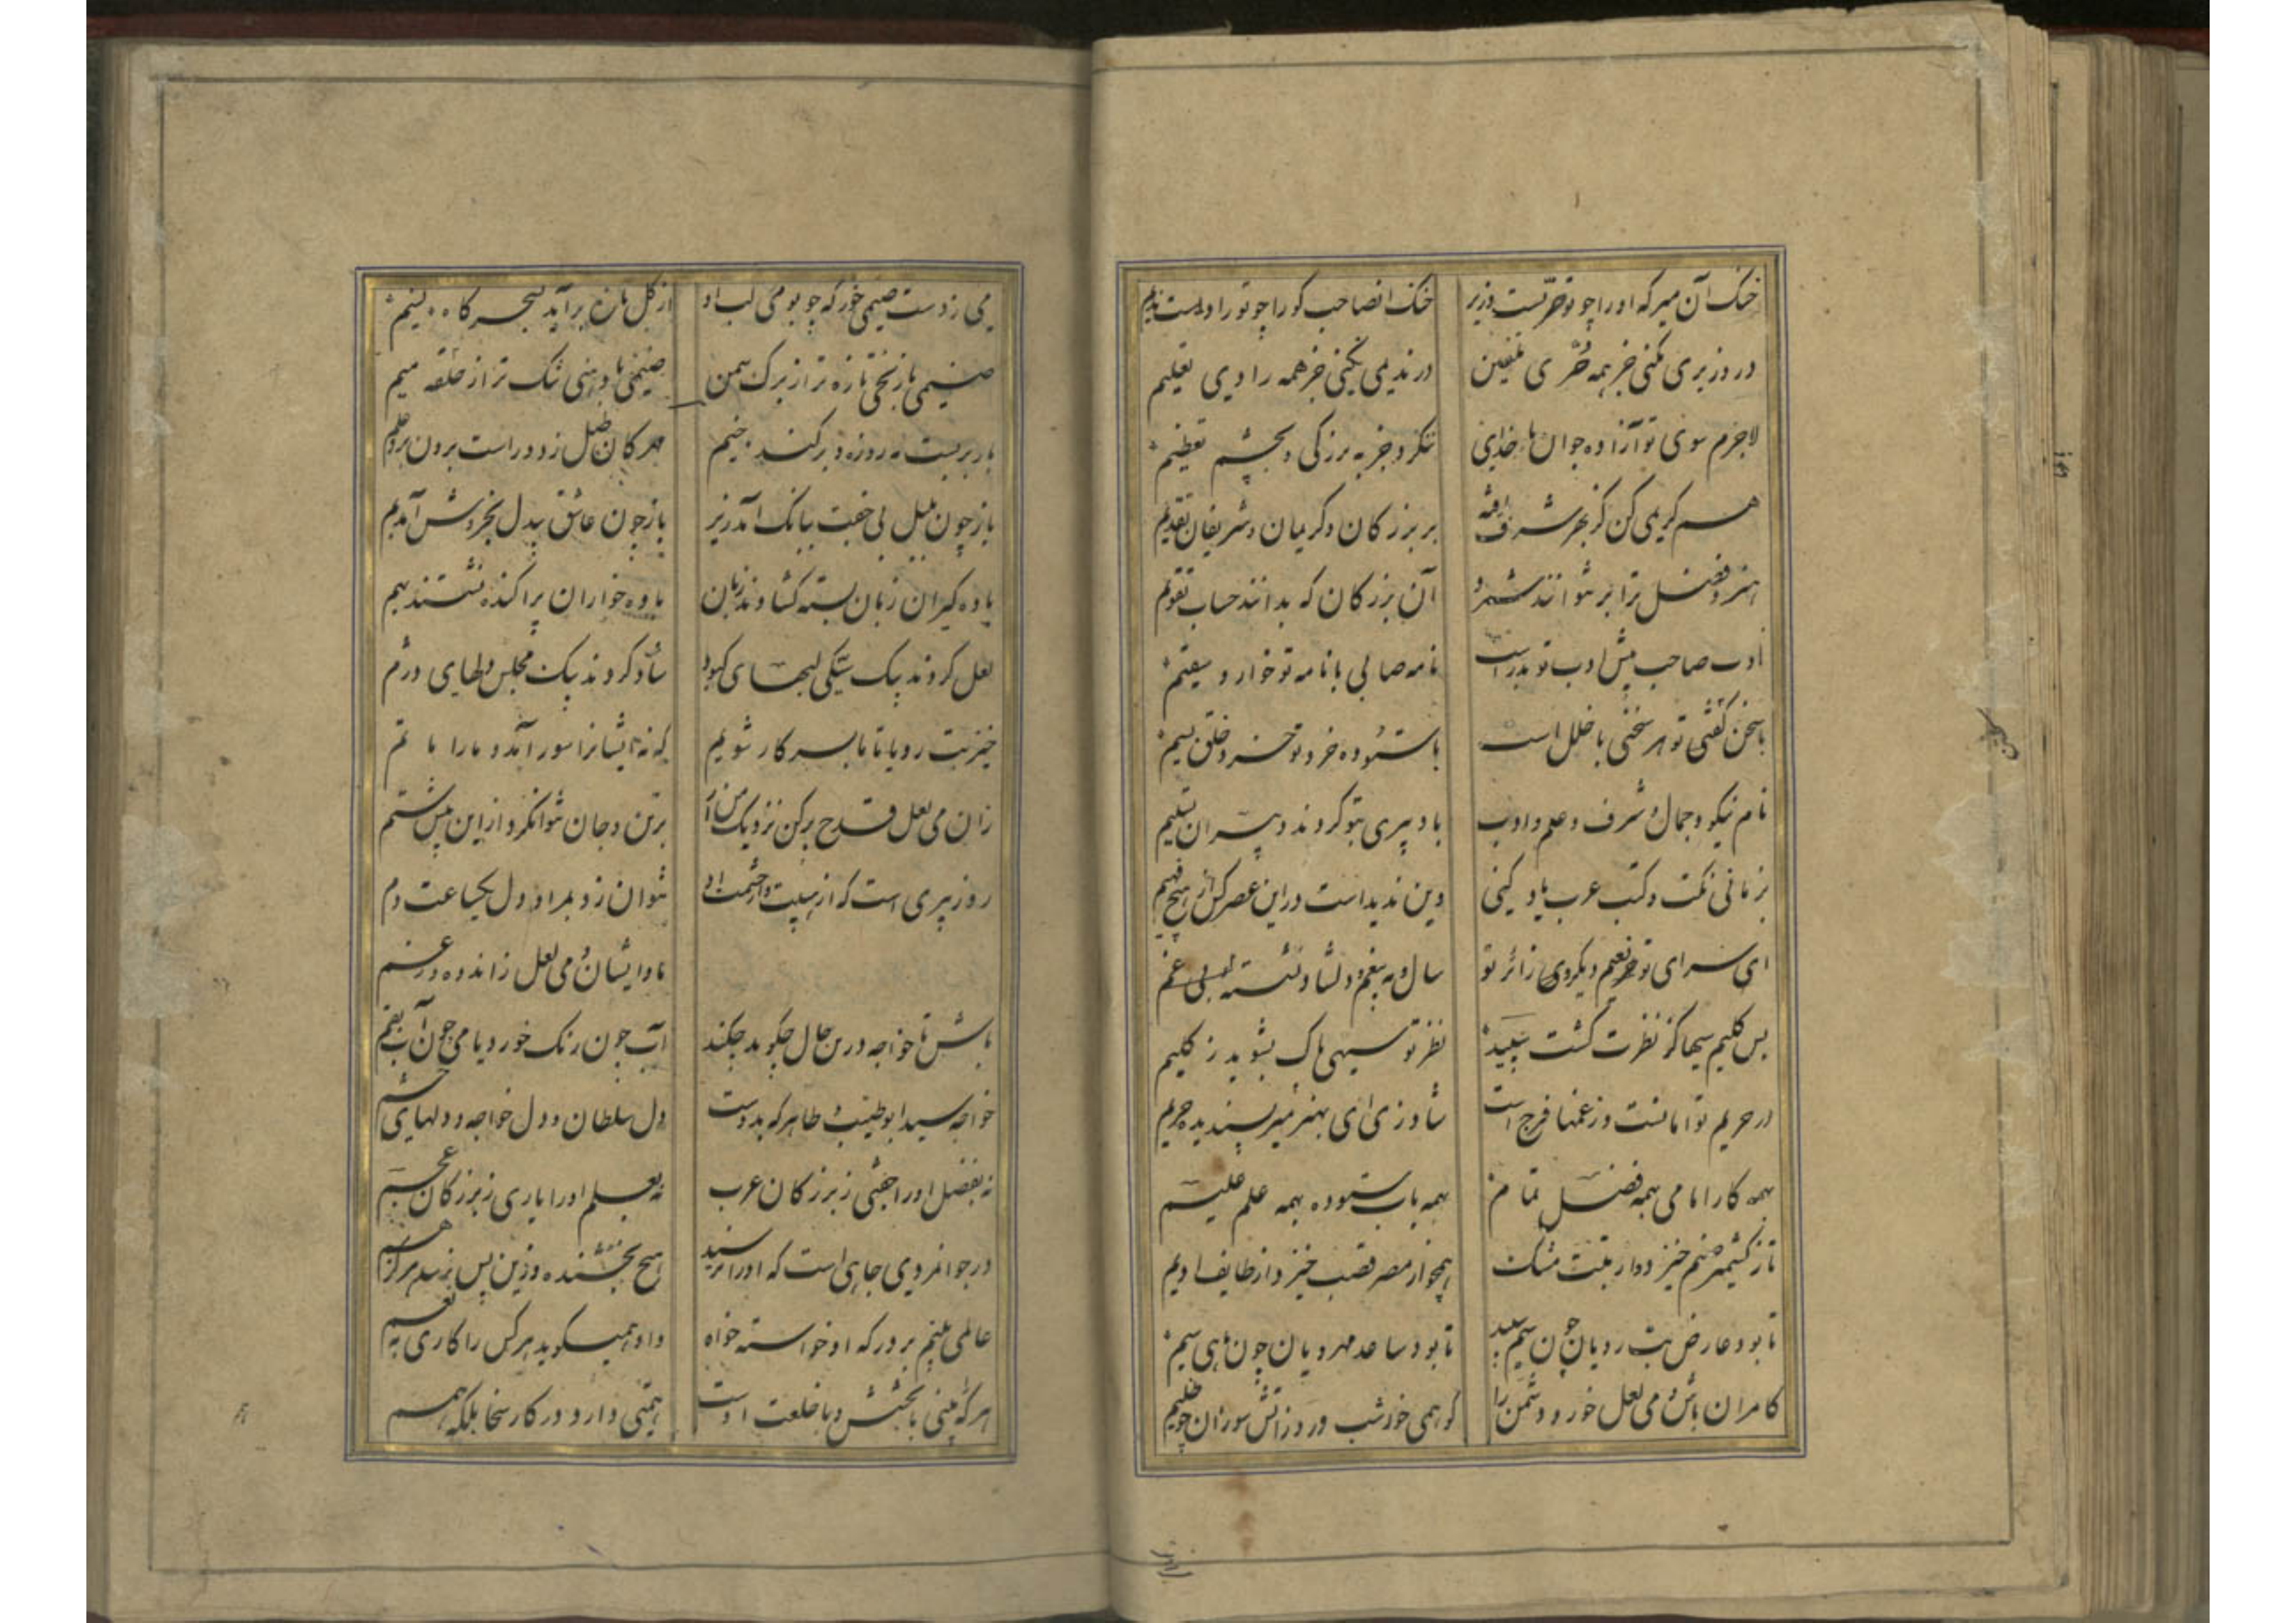 خنک آن میر که او را چو تو حرّست وزیر
خنک انصاحب کو را چو تو راوست ندیم
در وزیری نکنی جز همه حُرّی تلقین
در ندیمی نکنی جز همه رادی تعلیم
لاجرم سوی تو آزاده جوان بار خدای
ننکرد جز به بزرکی و بچشم تعظیم
هر کریمی کن کز بهر شرف یافته
بر بزرکان و کریمان و شریفان تقدیم
هنر و فضل ترا بر نتوانند شمرد
آن بزرکان که بدانند حساب تقویم
ادب صاحب پیش ادب تو هدر است
نامه صابی با نامه تو خوار و سقیم
با سخن کفتن تو هر سخنی با خلل است
با ستوده خرد تو خرد خلق سیم
نام نیکو و جمال و شرف و علم و ادب
یاد پیری بتو کردند دبیران تسلیم
بزمانی نکت و کتب عرب یاد کنی
وین ندیداست در این عصر کس از هیچ فهیم
ای سرای تو نعیم دیکر وی زائر تو
سال و مه بیغم و دلشاد نشسته بی غم
بس کلیم سیها کز نظرت کشت سپید
نظر تو سیهی پاک بشوید ز کلیم
در حریم تو امانست و ز غمها فرج است
شاد زی ای بهنر میر پسندیده حریم
همه کار امامی همه فضل تمام
همه باب ستوده همه علم علیم
تا ز کشیمر صنم خیزد و از تبت مشک
همچو از مصر قصب خیزد و از طایف ادیم
تا بود عارض بت رویان چون سیم سپید
تا بود ساعد مهرویان چون ماهی سیم
کامران باش و می لعل خور و دشمن را
کو همی خور شب و روز اتش سوزان چو ظلیم
می ز دست صنمی خور که چو بوی لب او
از کل تازه برآید بسحرکاه نسیم
صنمی با زنخی تازه تر از برک سمن
صنمی با دهنی تنک تر از حلقه میم
بار بربست مه روزه و برکند خیم
مهرکان طبل زد و راست برون برد علم
باز چون بلبل بی جفت ببانک آمد زیر
باز چون عاشق بیدل بخروش آمد بم
باده کیران زبان بسته کشادند زبان
باده خواران پراکنده نشستند بهم
لعل کردند بیک سیکی لبهای کبود
شاد کردند بیک مجلس دلهای دژم
خیز بت رویا تا ما بسر کار شویم
که نه ایشانرا سور آمد و ما را ماتم
زان می لعل قدح پر کن نزدیک من آر
بر تن و جان نتوانکرد از این بیش ستم
روز پیری است که از هیبت و از حشمت او
نتوان زد بمراد دل یکساعت دم
ما و ایشان و می لعل ز اندوه و ز غم
باش تا خواجه درین حال چکوید چکند
آب چون رنک خورد یا می چون آب بقم
خواجه سید ابو طیب طاهر که بدوست
دل سلطان و دل خواجه و دلهای حشم
نه بفضل او را جفتی ز بزرکان عرب
نه بعلم او را یاری ز بزرکان عجم
در جوانمردی جاهی است که او را نرسید
هیچ بخشنده و زین پس نرسد هرکز هم
عالمی بینم بر درکه او خواسته خواه
و او همیکوید هر کس را کاری به نعم
هر که بینی با بخشش و با خلعت اوست
همتی دارد در کار سخا بلکه همم